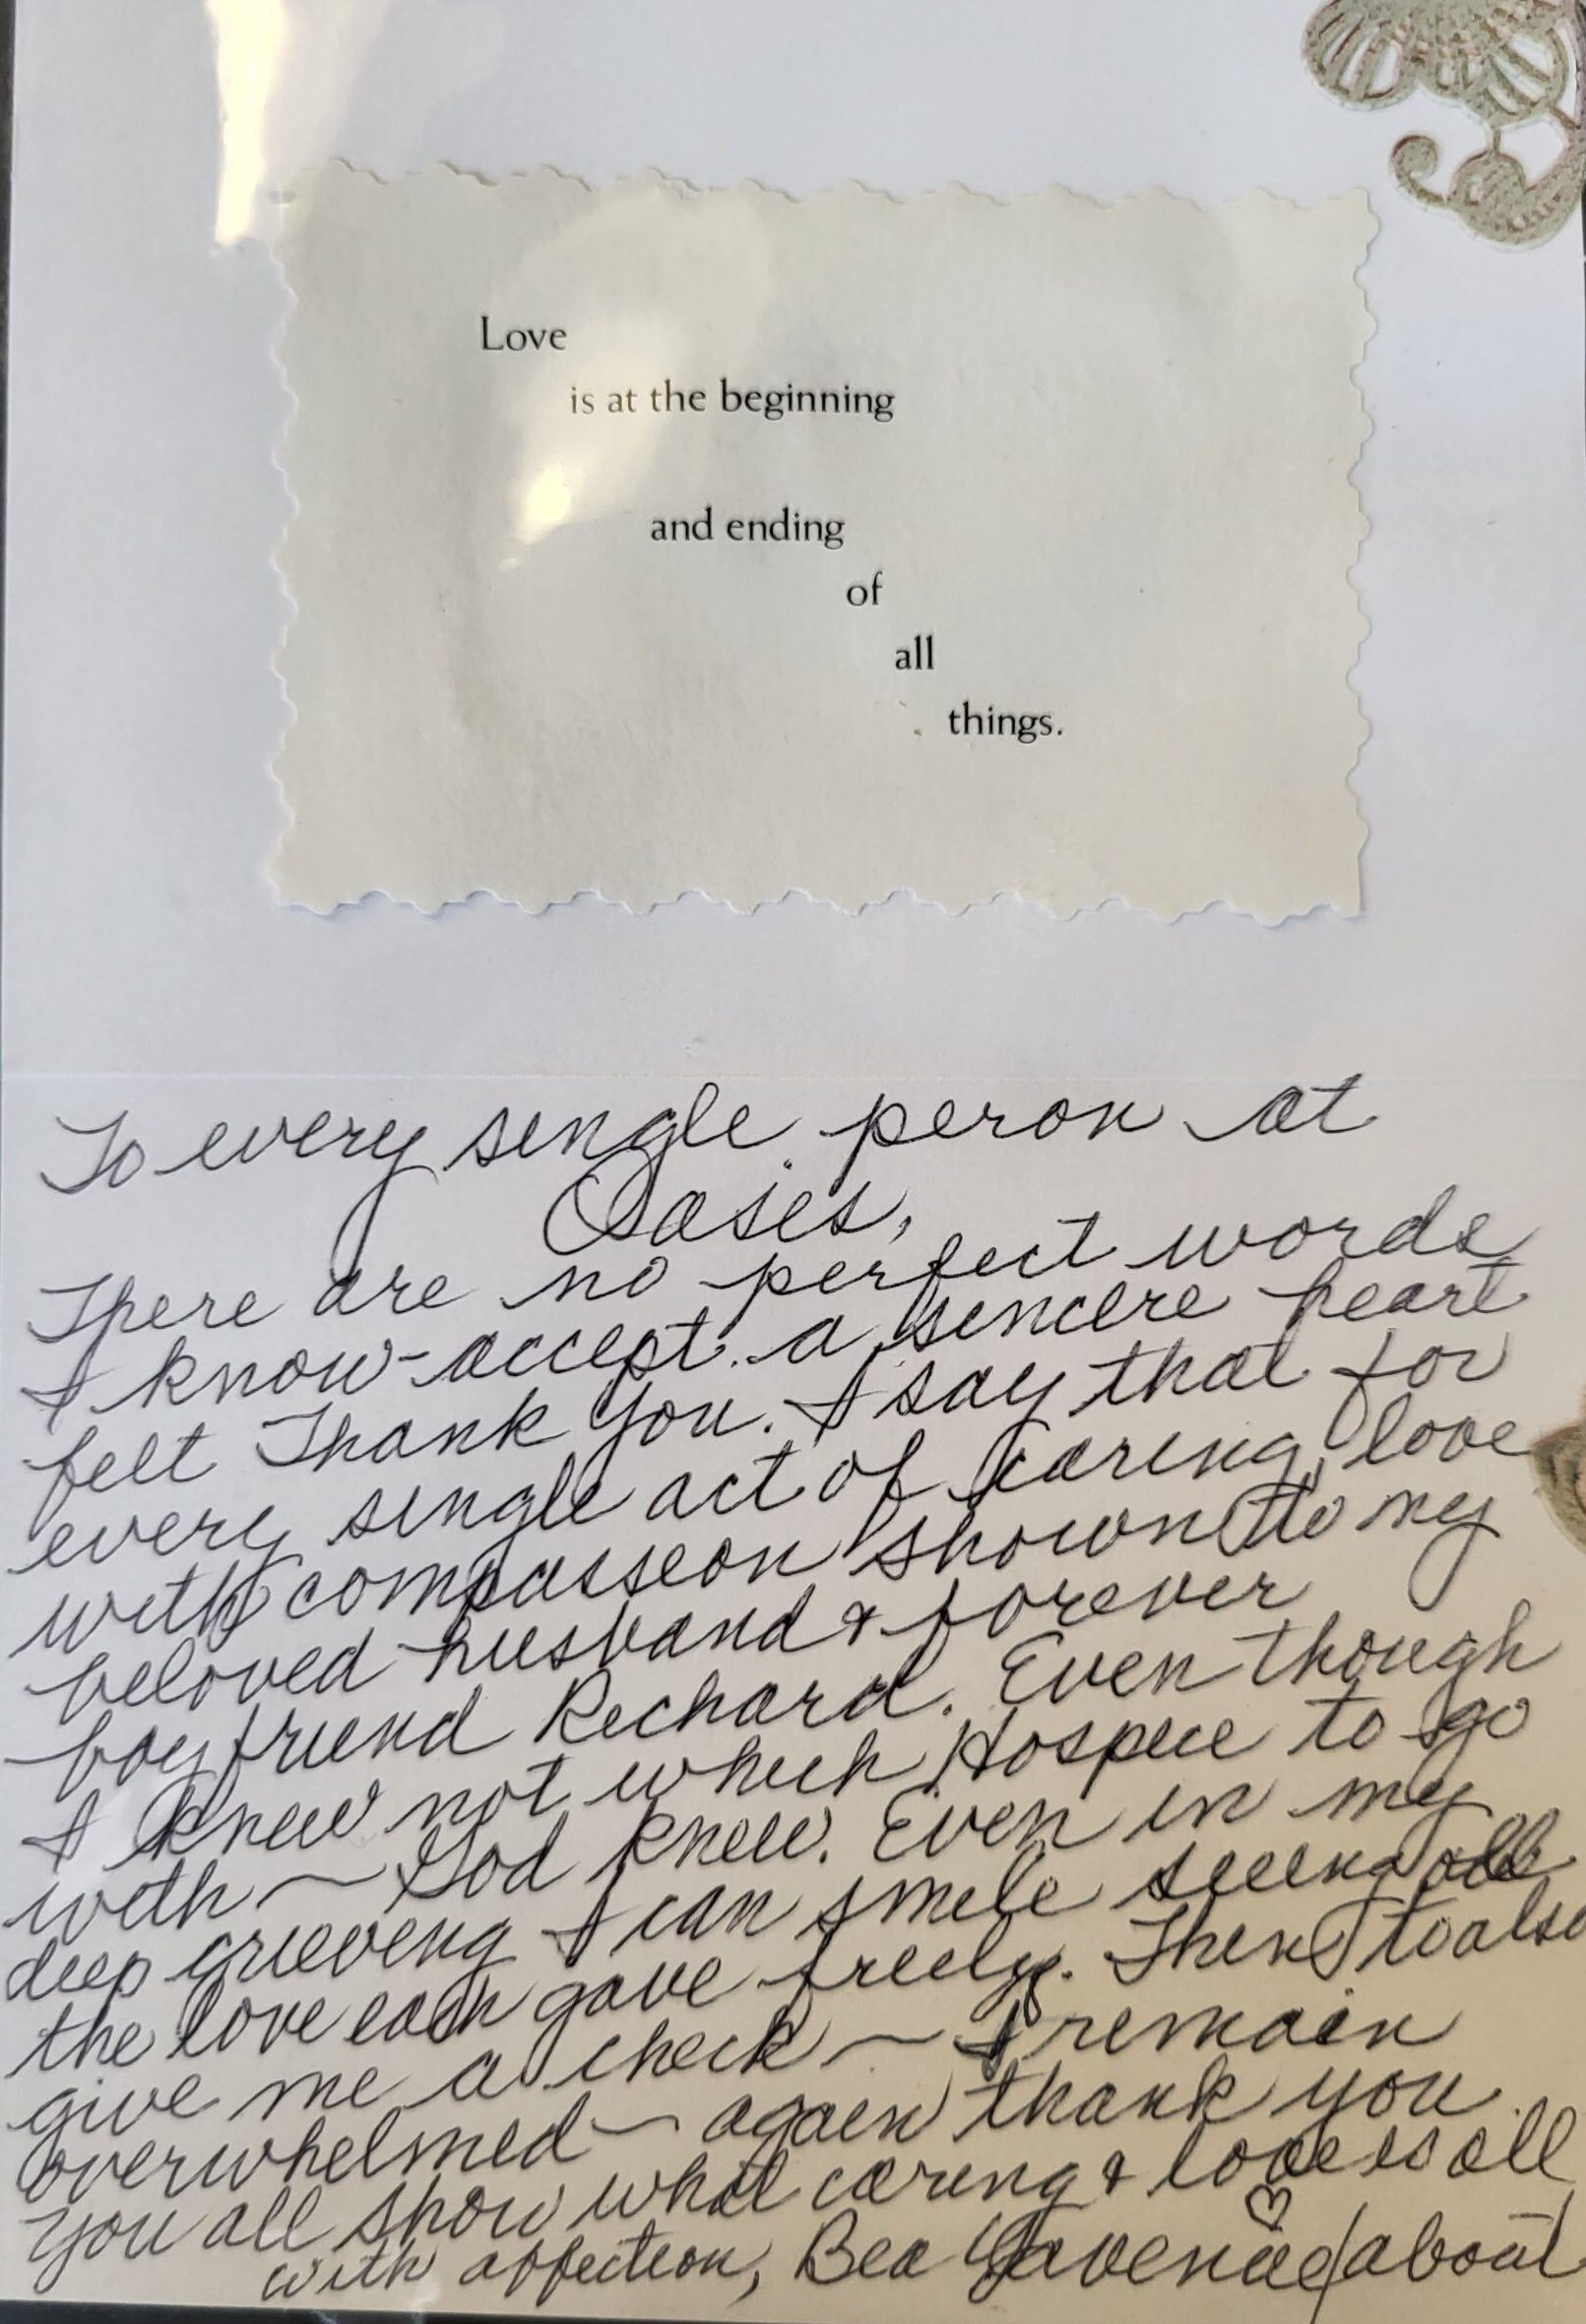 Love
is at the beginning
and ending
of
all
things.
To every single peron at
Oasis,
There are no perfect words
I know - accept a sincere heart
felt Thank You. I say that for
every single act of caring, love
with compassion shown to my
beloved husband & forever
boyfriend Richard. Even though
I knew not which Hospice to go
with ~ God knew. Even in my
deep grieving I can smile seeing all
the love each gave freely. Then to also
give me a check ~ I remain
overwhelmed ~ again thank you.
You all show what caring & love is all
with affection, Bea /about